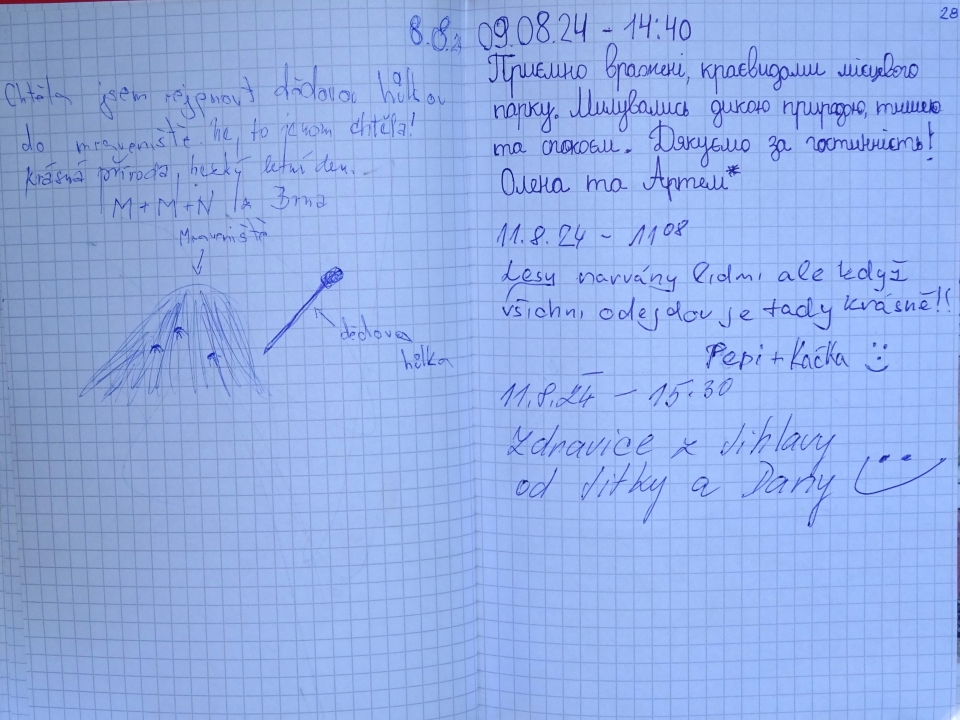 28
8.8.
Chtěla jsem dědovou hůlkou
do mraveniště. ne, to jenom chtěla!
krásná příroda, hezký letní den..
M+M+N z Brna
Mraveniště
dědova
hůlka
09.08.24 - 14:40
Приємно вражені, краєвидами місцевого
парку. Милувались дикою природою, тишею
та спокоєм. Дякуємо за гостинність!
Олена та Артем*
11.8.24 - 11 08
Lesy narvány lidmi ale když
všichni odejdou je tady krásně!!
Pepi + Kačka :)
11.8.24 - 15:30
Zdravice z Jihlavy
od Jitky a Dany